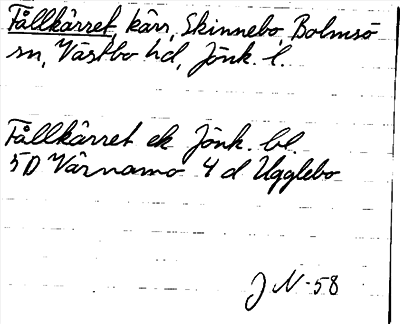 Fållkärret, kärr, Skinnebo, Bolmsö
sn, Västbo hd, Jönk. l.
Fållkärret ek Jönk. bl.
5D Värnamo 4 d Ugglebo
J N-58